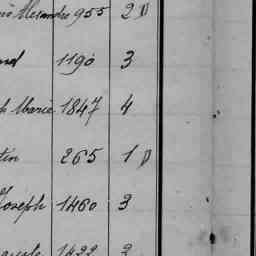 Alexandre 955 2
1190 3
Marie 1847 4
265 1
Joseph 1460 3
1422 3